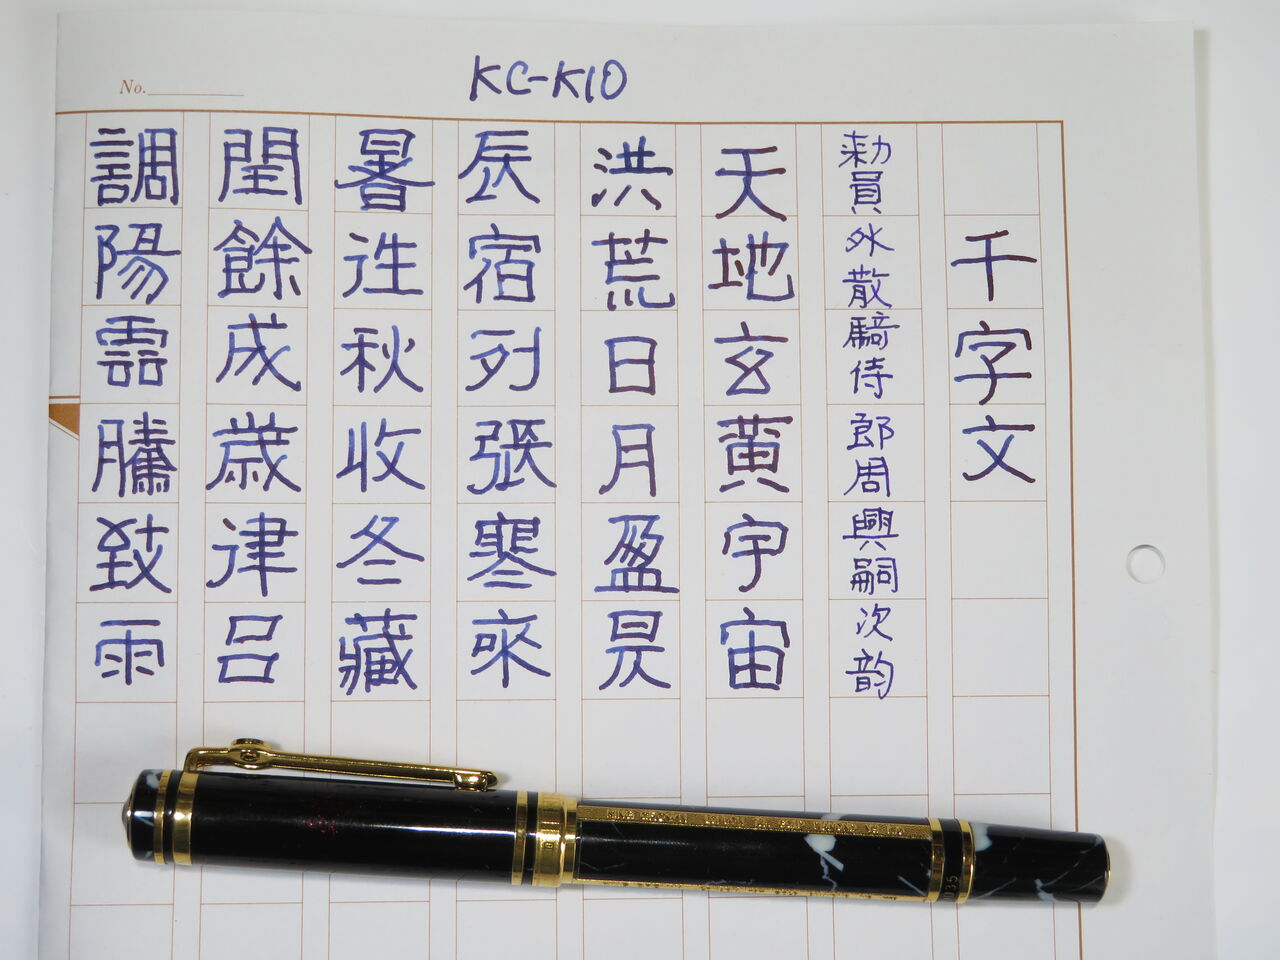 KC-K10
No.
千字文
勅員外散騎侍郎周興嗣次韵
天地玄黄宇宙
洪荒日月盈昃
辰宿列張寒來
暑往秋收冬藏
閏餘成歳律呂
調陽雲騰致雨